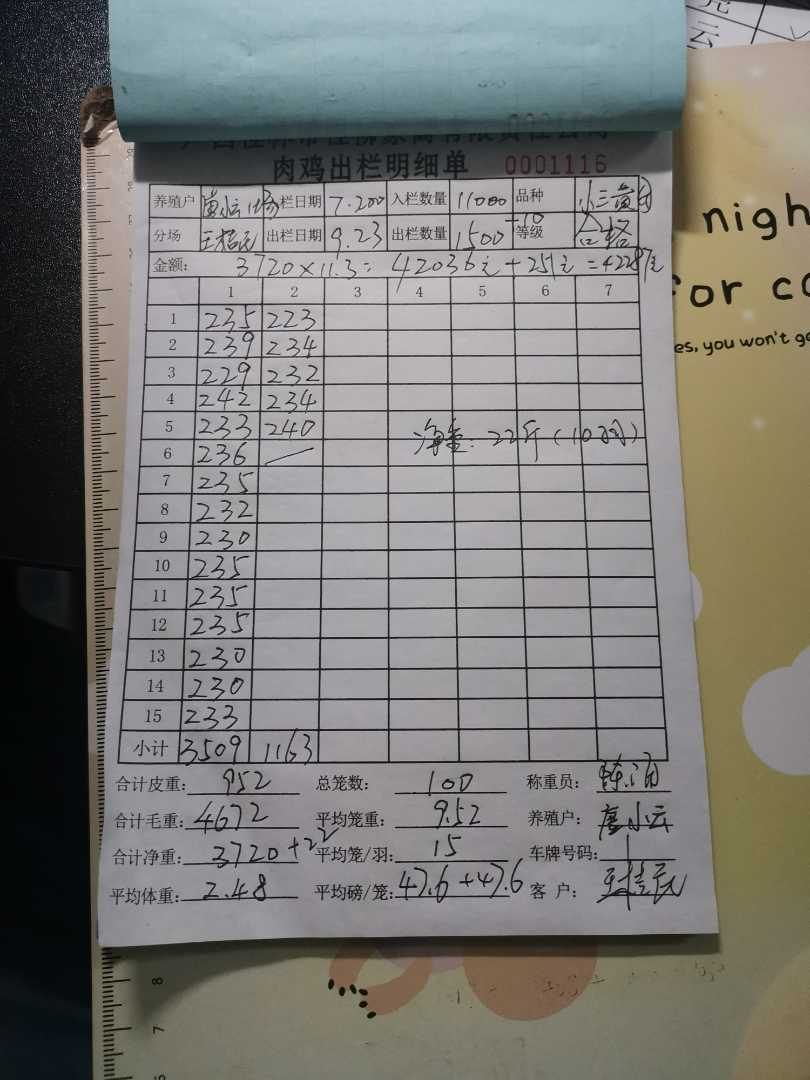 肉鸡出栏明细单 0001116
养殖户 唐小云 栏日期 7.200 入栏数量 11000 品种 小三黄
分场 出栏日期 9.23 出栏数量 1500 +10 等级 合格
金额: 3720×11.3= 42036元+251元=42287元
1 2 3 4 5 6 7
1 235 223
2 239 234
3 229 232
4 242 234
5 233 240 净重: 22斤(10羽)
6 236
7 235
8 232
9 230
10 235
11 235
12 235
13 230
14 230
15 233
小计 3509 1163
合计皮重: 952 总笼数: 100 称重员:
合计毛重: 4672 平均笼重: 9.52 养殖户: 唐小云
合计净重: 3720+22 平均笼/羽: 15 车牌号码:
平均体重: 2.48 平均磅/笼: 47.6+47.6 客户:
night
for
es, you won't
8
7